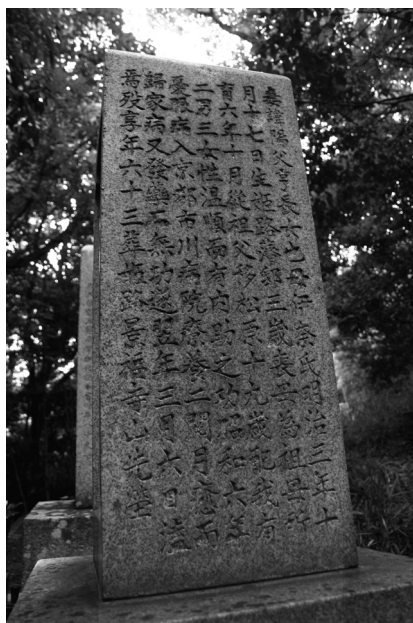 妻諱陽父亨長女也母伊奈氏明治三年十
月十七日生姫路藩邸三歳喪母為祖母所
育六年十月從祖父移松原十九歳配我有
二男三女性温順而有内助之功昭和六年
憂眼病入京都市川病院療養二閲月癒而
歸家病又發藥石無功遂翌年三月六日溘
焉歿享年六十三葬姫路景福寺山先塋